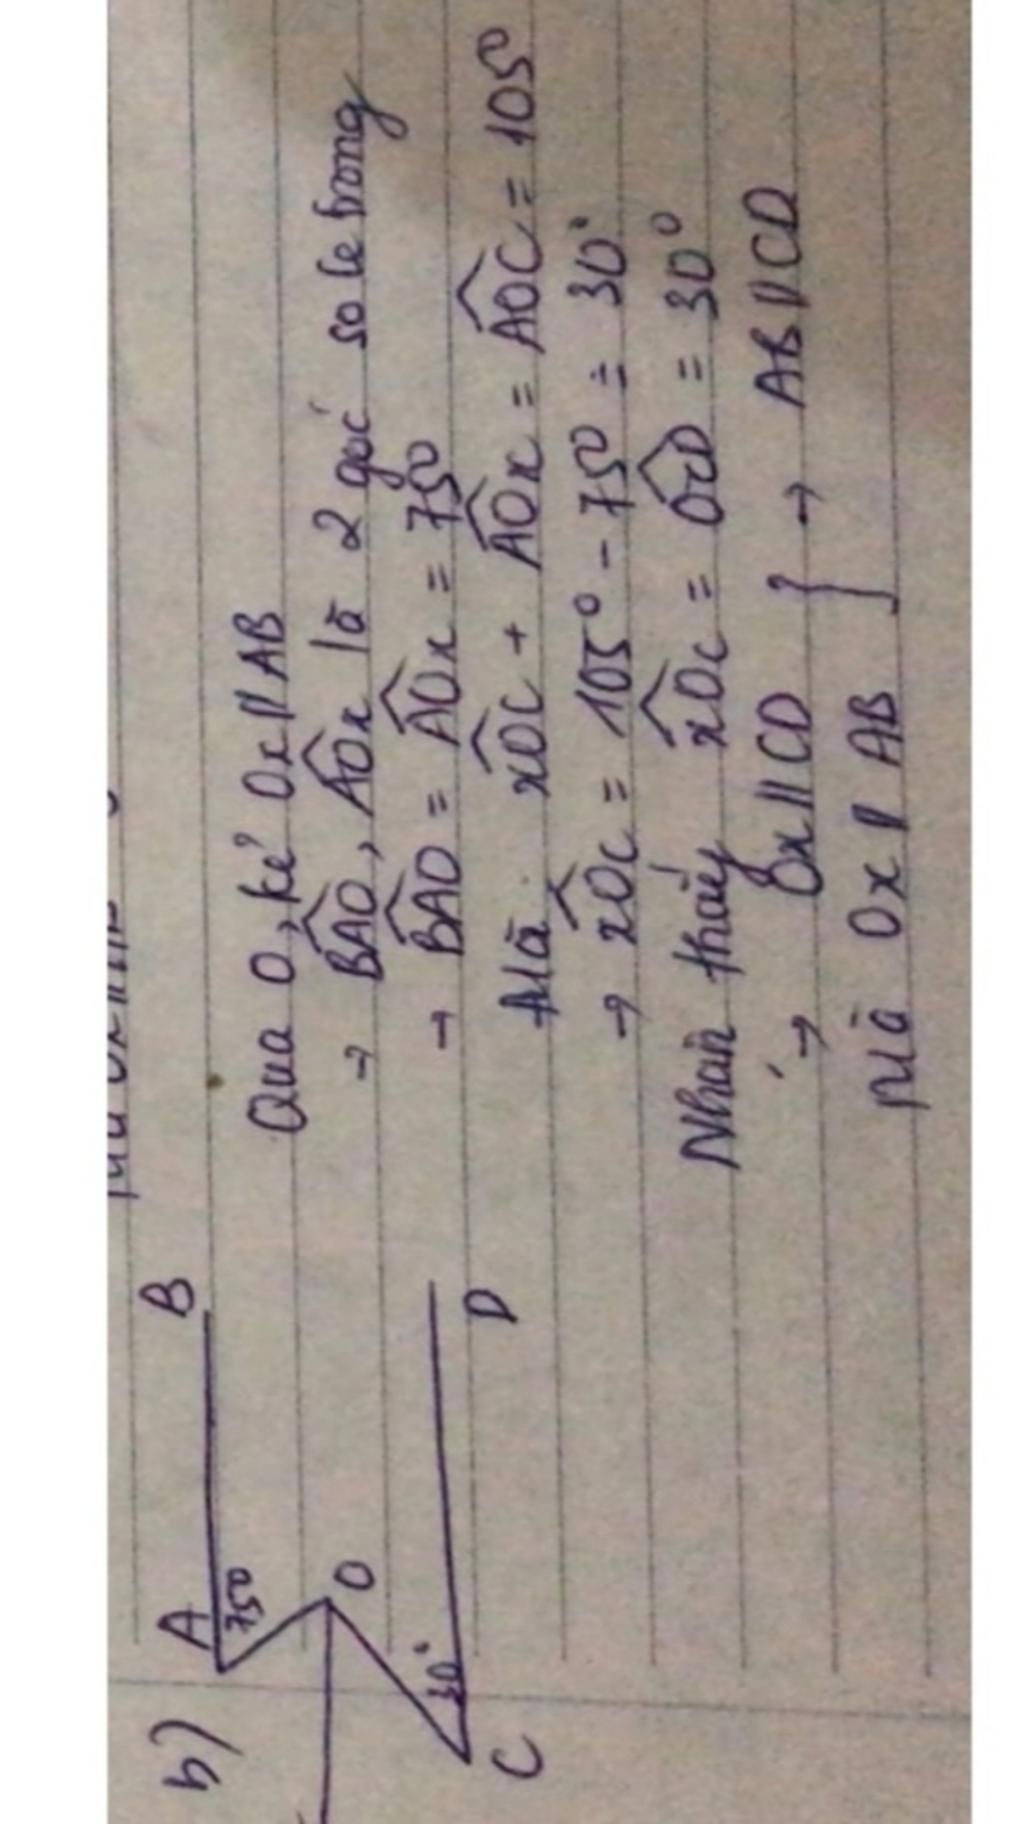 b)
A
B
75°
O
30°
C
D
Qua O, kẻ Ox // AB
→ BAO, AOx là 2 góc so le trong
→ BAO = AOx = 75°
Mà xOC + AOx = AOC = 105°
→ xOC = 105° - 75° = 30°
Nhận thấy xOC = OCD = 30°
→ Ox // CD
Mà Ox // AB } → AB // CD